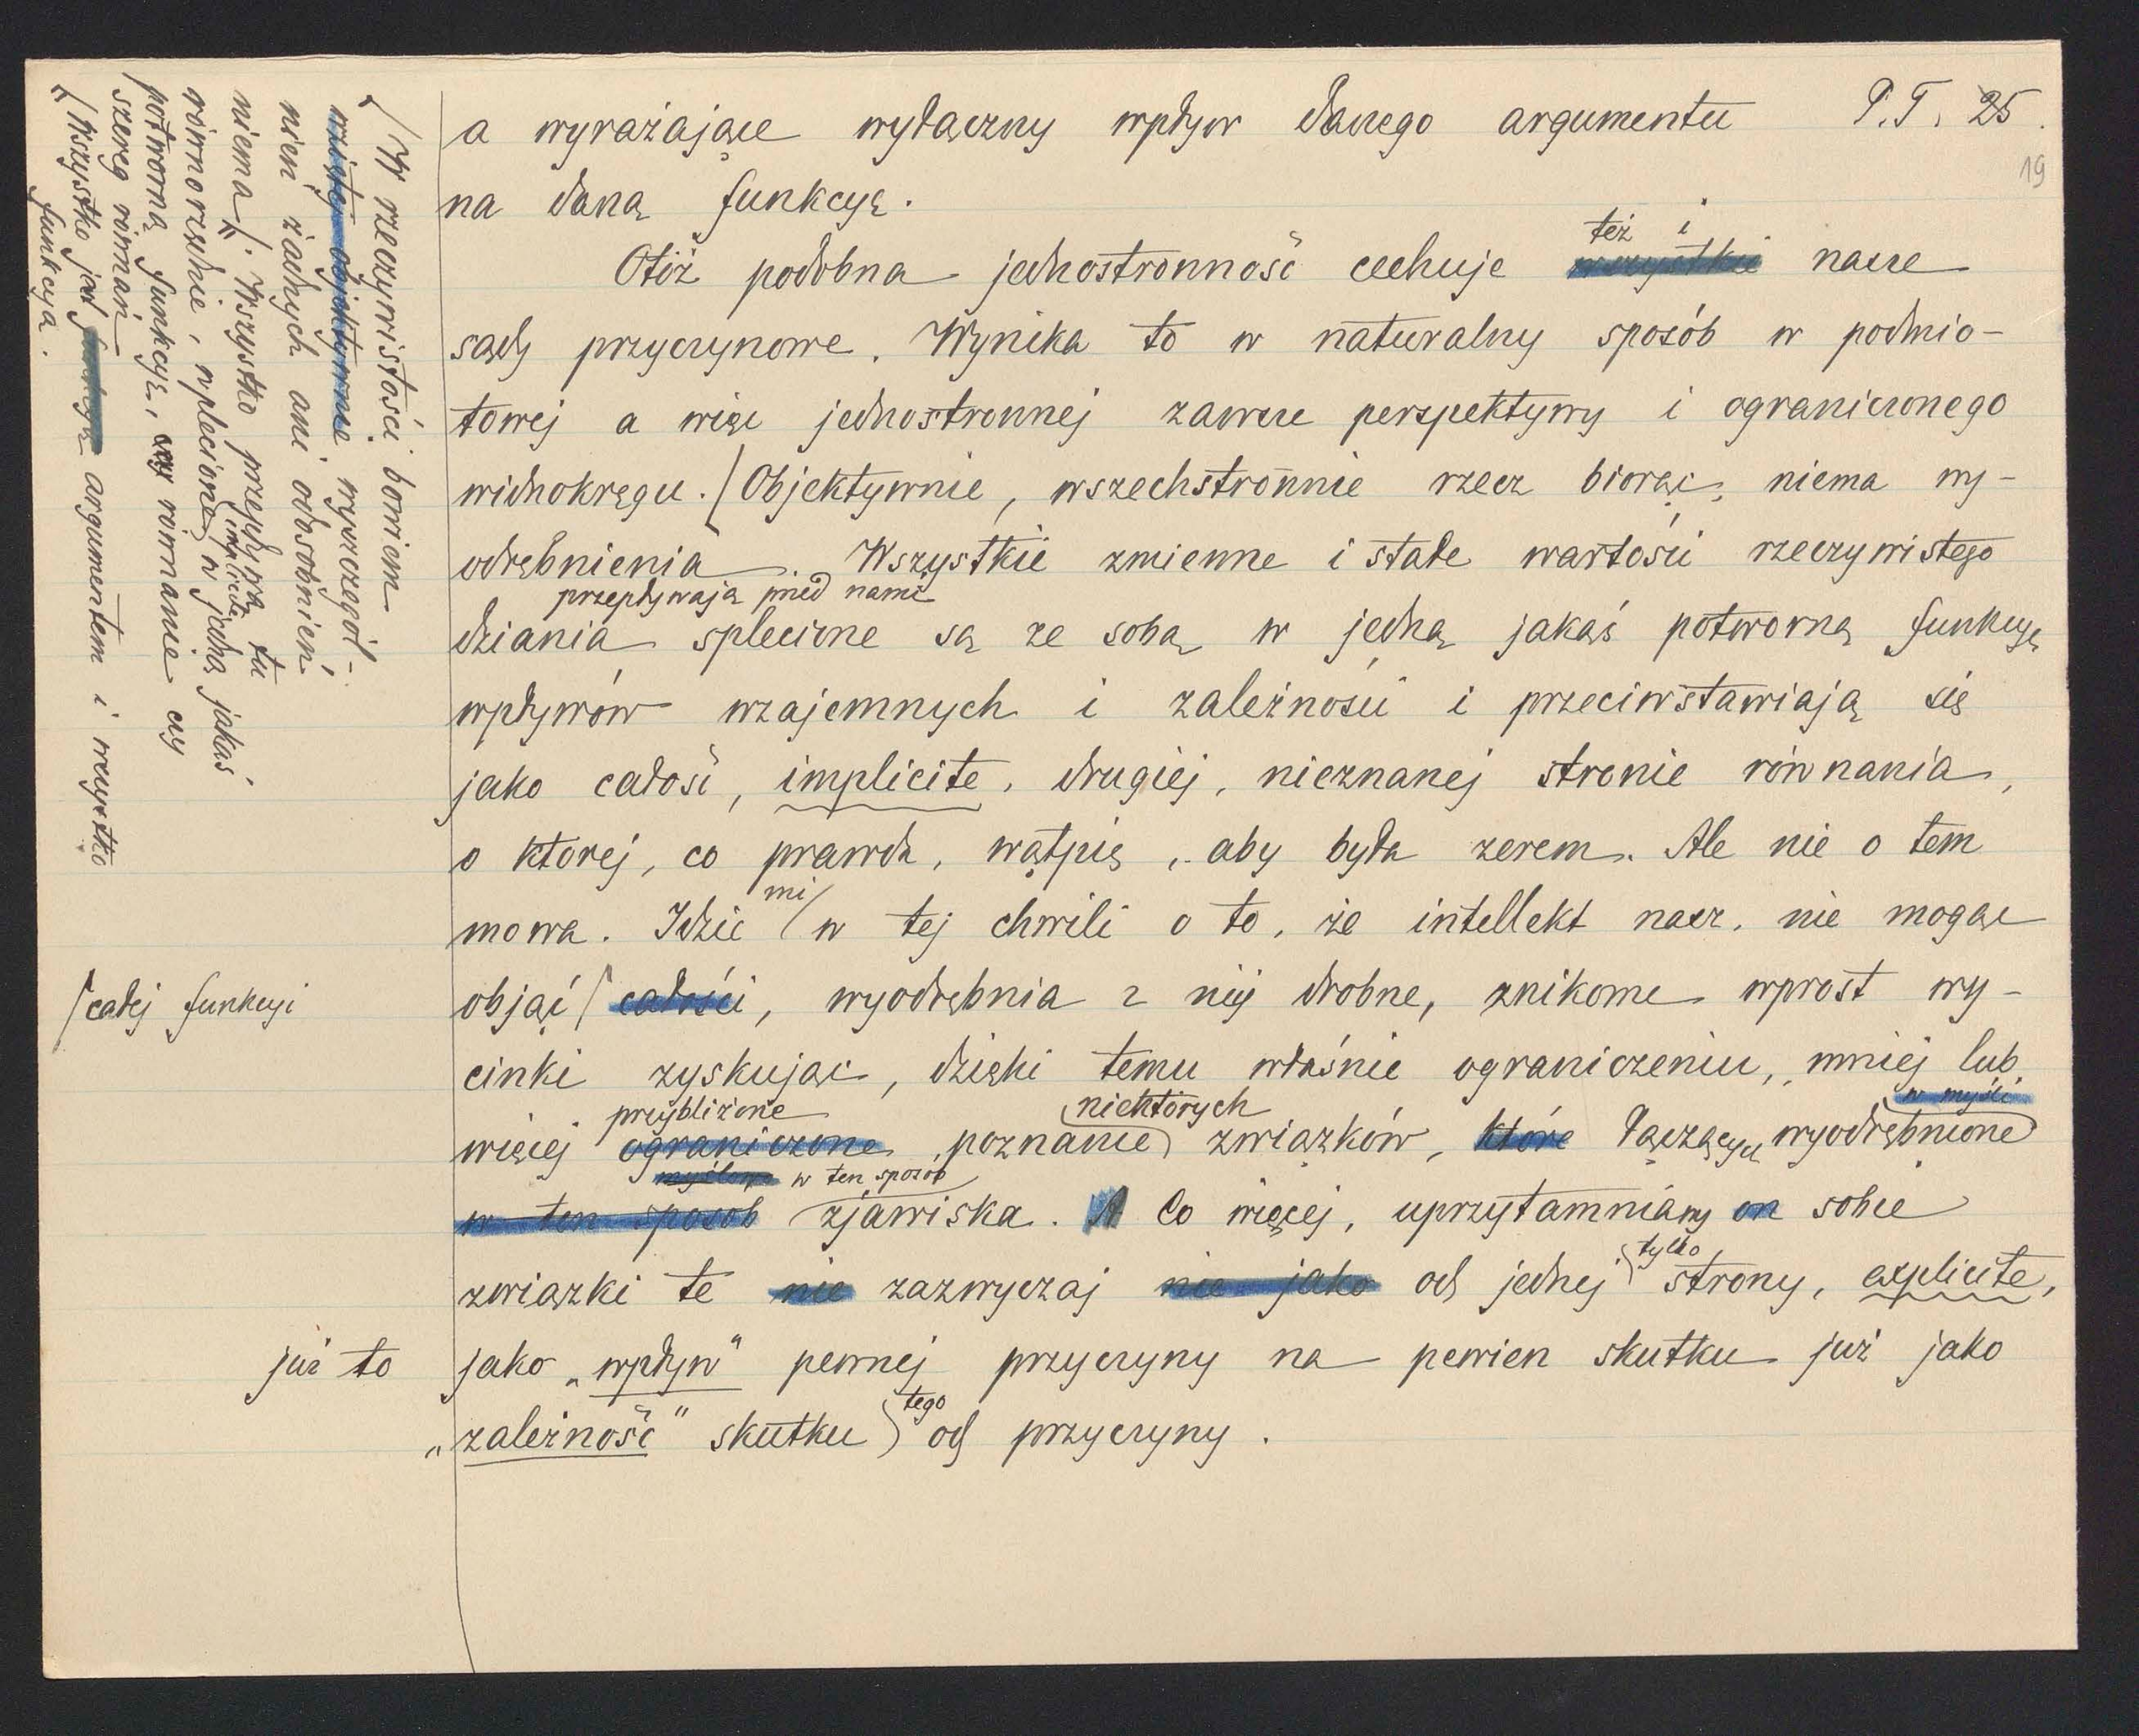 a wyrażające wyłączny wpływ danego argumentu P.T. 25.
19
na daną funkcyę.
też i
Otóż podobna jednostronność cechuje wszystkie nasze
sądy przyczynowe. Wynika to w naturalny sposób w podmio-
towej a więc jednostronnej zawsze perspektywy i ograniczonego
widnokręgu. / Objektywnie, wszechstronnie rzecz biorąc, niema wy-
odrębnienia. Wszystkie zmienne i stałe wartości rzeczywistego
przepływają przed nami
dziania splecione są ze sobą w jedną jakąś potworną funkcyę
wpływów wzajemnych i zależności i przeciwstawiają się
jako całość, implicite, drugiej, nieznanej stronie równania,
o której, co prawda, wątpię, aby była zerem. Ale nie o tem
mi
mowa. Idzie / w tej chwili o to, że intellekt nasz, nie mogąc
/ całej funkcyi
objąć / całości, wyodrębnia z niej drobne, znikome wprost wy-
cinki zyskując, dzięki temu właśnie ograniczeniu, mniej lub
przybliżone niektórych w myśli
więcej ograniczone poznanie związków, które łączących wyodrębnione
myślowo w ten sposób
w ten sposób zjawiska. A Co więcej, uprzytamniamy on sobie
tylko
związki te nie zazwyczaj nie jako od jednej strony, explicite,
już to
jako „wpływ" pewnej przyczyny na pewien skutku już jako
tego
„zależność" skutku od przyczyny.
/ W rzeczywistości bowiem
wziętej objektywnie wyszczegól-
nień żadnych ani odosobnień
niema /. Wszystko przepływa tu
implicite
równorzędnie, wplecione w jedną jakąś
potworną funkcyę, czy równanie czy
szereg równań
/ Wszystko jest funkcyą argumentem i wszystko
funkcyą.